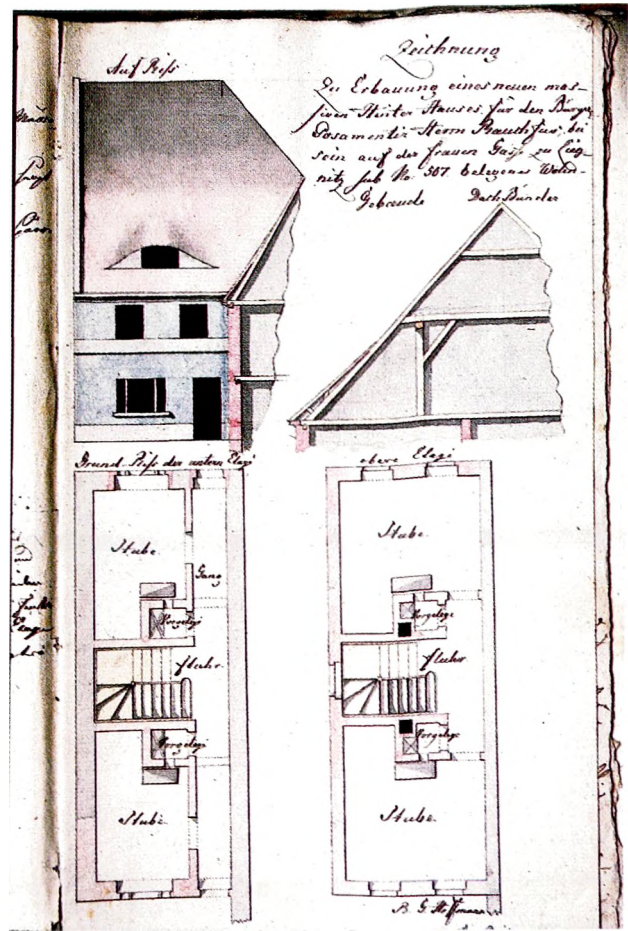 Zeichnung
Zu Erbauung eines neuen mas-
siven Hinter Hauses für den Bürger
Posamentir Herrn Rauchfus, bei
sein auf der frauen Gasse zu Lieg-
nitz sub No. 567 belegenes Wohn-
Gebaeude
Auf Riss
Dach Binder
Grund Riss der untern Etage
obere Etage
Stube
Gang
Vorgelege
fluhr
Vorgelege
Stube
Stube
Vorgelege
fluhr
Vorgelege
Stube
B. G. Hoffmann